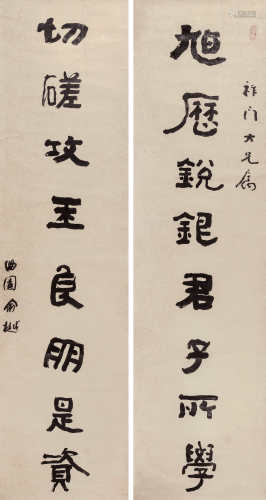 門大兄屬
旭歷銳君子所學
切磋攻玉良朋是資
曲園俞樾